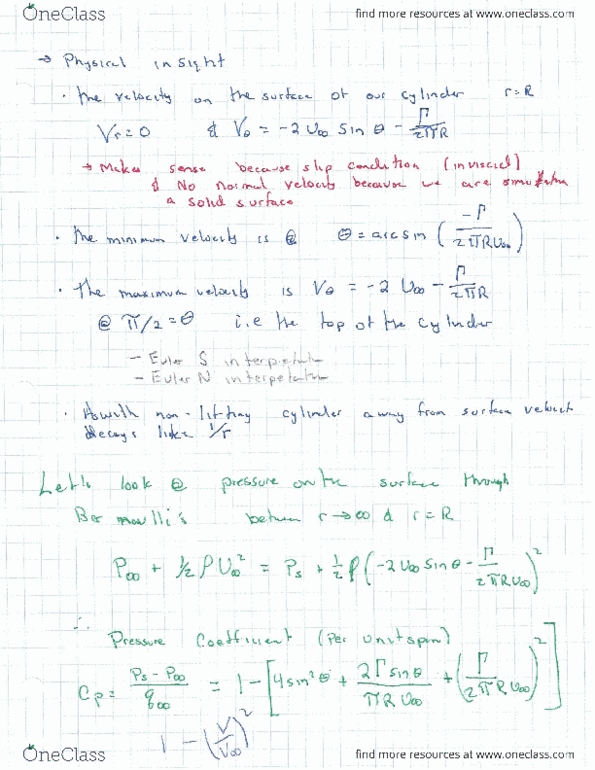 OneClass find more resources at www.oneclass.com
→ Physical insight
· The velocity on the surface of our cylinder r=R
Vr=0 & Vθ = -2 U∞ Sin θ - Γ/2πR
→ Makes sense because slip condition (inviscid)
& No normal velocity because we are
a solid surface
· The minimum velocity is @ θ = arcsin (-Γ/2πRU∞)
· The maximum velocity is Vθ = -2 U∞ - Γ/2πR
@ π/2 = θ i.e the top of the cylinder
- Euler S
- Euler N
· As with non-lifting cylinder away from surface
decays like 1/r
Let's look @ pressure on the surface through
between r→∞ & r=R
P∞ + 1/2 ρ U∞² = Ps + 1/2 ρ (-2 U∞ Sin θ - Γ/2πRU∞)²
∴
Pressure Coefficient (Per unit span)
Cp = Ps - P∞/q∞ = 1 - [4 sin²θ + 2Γ sin θ/πRU∞ + (Γ/2πRU∞)²]
1 - (V/V∞)²
OneClass find more resources at www.oneclass.com